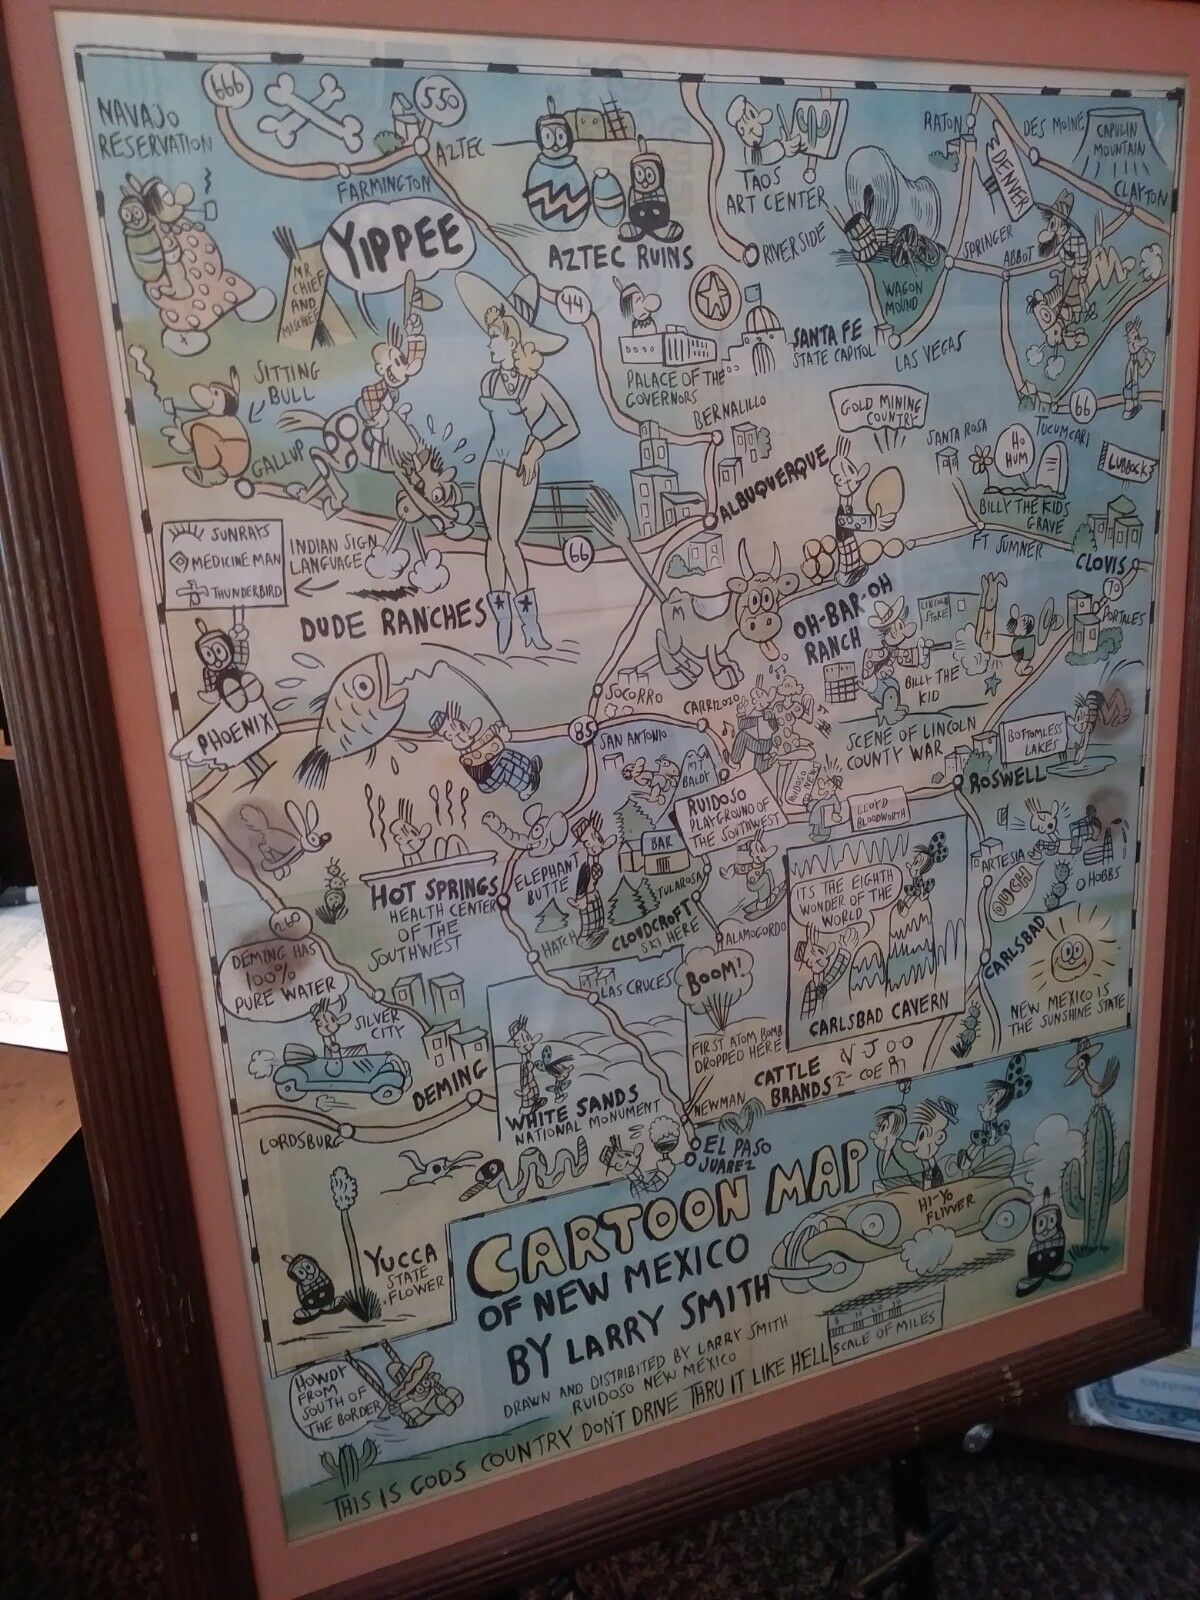 NAVAJO
RESERVATION
666
550
AZTEC
FARMINGTON
YIPPEE
MR.
CHIEF
AND
MISCHIEF
AZTEC RUINS
TAOS
ART CENTER
RIVERSIDE
RATON
DES MOINE
CAPULIN
MOUNTAIN
CLAYTON
DENVER
SPRINGER
ABBOT
WAGON
MOUND
44
SANTA FE
STATE CAPITOL
LAS VEGAS
PALACE OF THE
GOVERNORS
BERNALILLO
66
TUCUMCARI
SITTING
BULL
GALLUP
GOLD MINING
COUNTRY
SANTA ROSA
HO
HUM
LUBBOCK
BILLY THE KIDS
GRAVE
ALBUQUERQUE
FT SUMNER
CLOVIS
SUNRAYS
MEDICINE MAN
THUNDERBIRD
INDIAN SIGN
LANGUAGE
66
DUDE RANCHES
M
OH-BAR-OH
RANCH
LINCOLN
STORE
70
PORTALES
BILLY THE
KID
PHOENIX
SOCORRO
CARRIZOZO
85
SAN ANTONIO
SCENE OF LINCOLN
COUNTY WAR
BOTTOMLESS
LAKES
ROSWELL
MT
BALDY
RUIDOSO
PLAYGROUND OF
THE SOUTHWEST
RUIDOSO
NEWS
LLOYD
BLOODWORTH
BAR
ELEPHANT
BUTTE
TULAROSA
HOT SPRINGS
HEALTH CENTER
OF THE
SOUTHWEST
CLOUDCROFT
SKI HERE
HATCH
ALAMOGORDO
ITS THE EIGHTH
WONDER OF THE
WORLD
CARLSBAD CAVERN
ARTESIA
OUCH
HOBBS
CARLSBAD
NEW MEXICO IS
THE SUNSHINE STATE
260
DEMING HAS
100%
PURE WATER
SILVER
CITY
DEMING
LAS CRUCES
BOOM!
FIRST ATOM BOMB
DROPPED HERE
CATTLE
BRANDS
WHITE SANDS
NATIONAL MONUMENT
NEWMAN
EL PASO
JUAREZ
LORDSBURG
YUCCA
STATE
FLOWER
HI-YO
FLIVVER
CARTOON MAP
OF NEW MEXICO
BY LARRY SMITH
DRAWN AND DISTRIBITED BY LARRY SMITH
RUIDOSO NEW MEXICO
SCALE OF MILES
HOWDY
FROM
SOUTH OF
THE BORDER
THIS IS GODS COUNTRY DON'T DRIVE THRU IT LIKE HELL